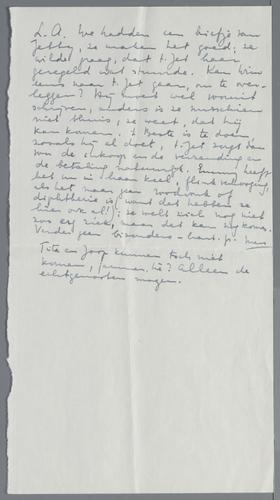 L. A. We hadden een briefje van
Jetty, ze maken het goed; ze
wilde graag, dat t. Jet haar
geregeld wat stuurde. Kan Wim
eens naar t. Jet gaan, om te over-
leggen? Hij moet wel vooruit
schrijven, anders is ze misschien
niet thuis, ze weet, dat hij
kan komen. 't Beste is te doen
zooals hij al doet, t. Jet zorgt dan
voor de inkoop en de verzending en
de betaling natuurlijk. Emmy heeft
het nu in haar keel, flinke verhooging,
als het maar geen roodvonk of
diphtherie is, want dat hebben ze
hier ook al! ze voelt zich nog niet
zoo erg ziek, maar dat kan nog komen.
Verder geen bizonders – hart. gr. 
Tite en Joop kunnen toch niet
komen, jammer, hè? Alleen de
echtgenooten mogen.